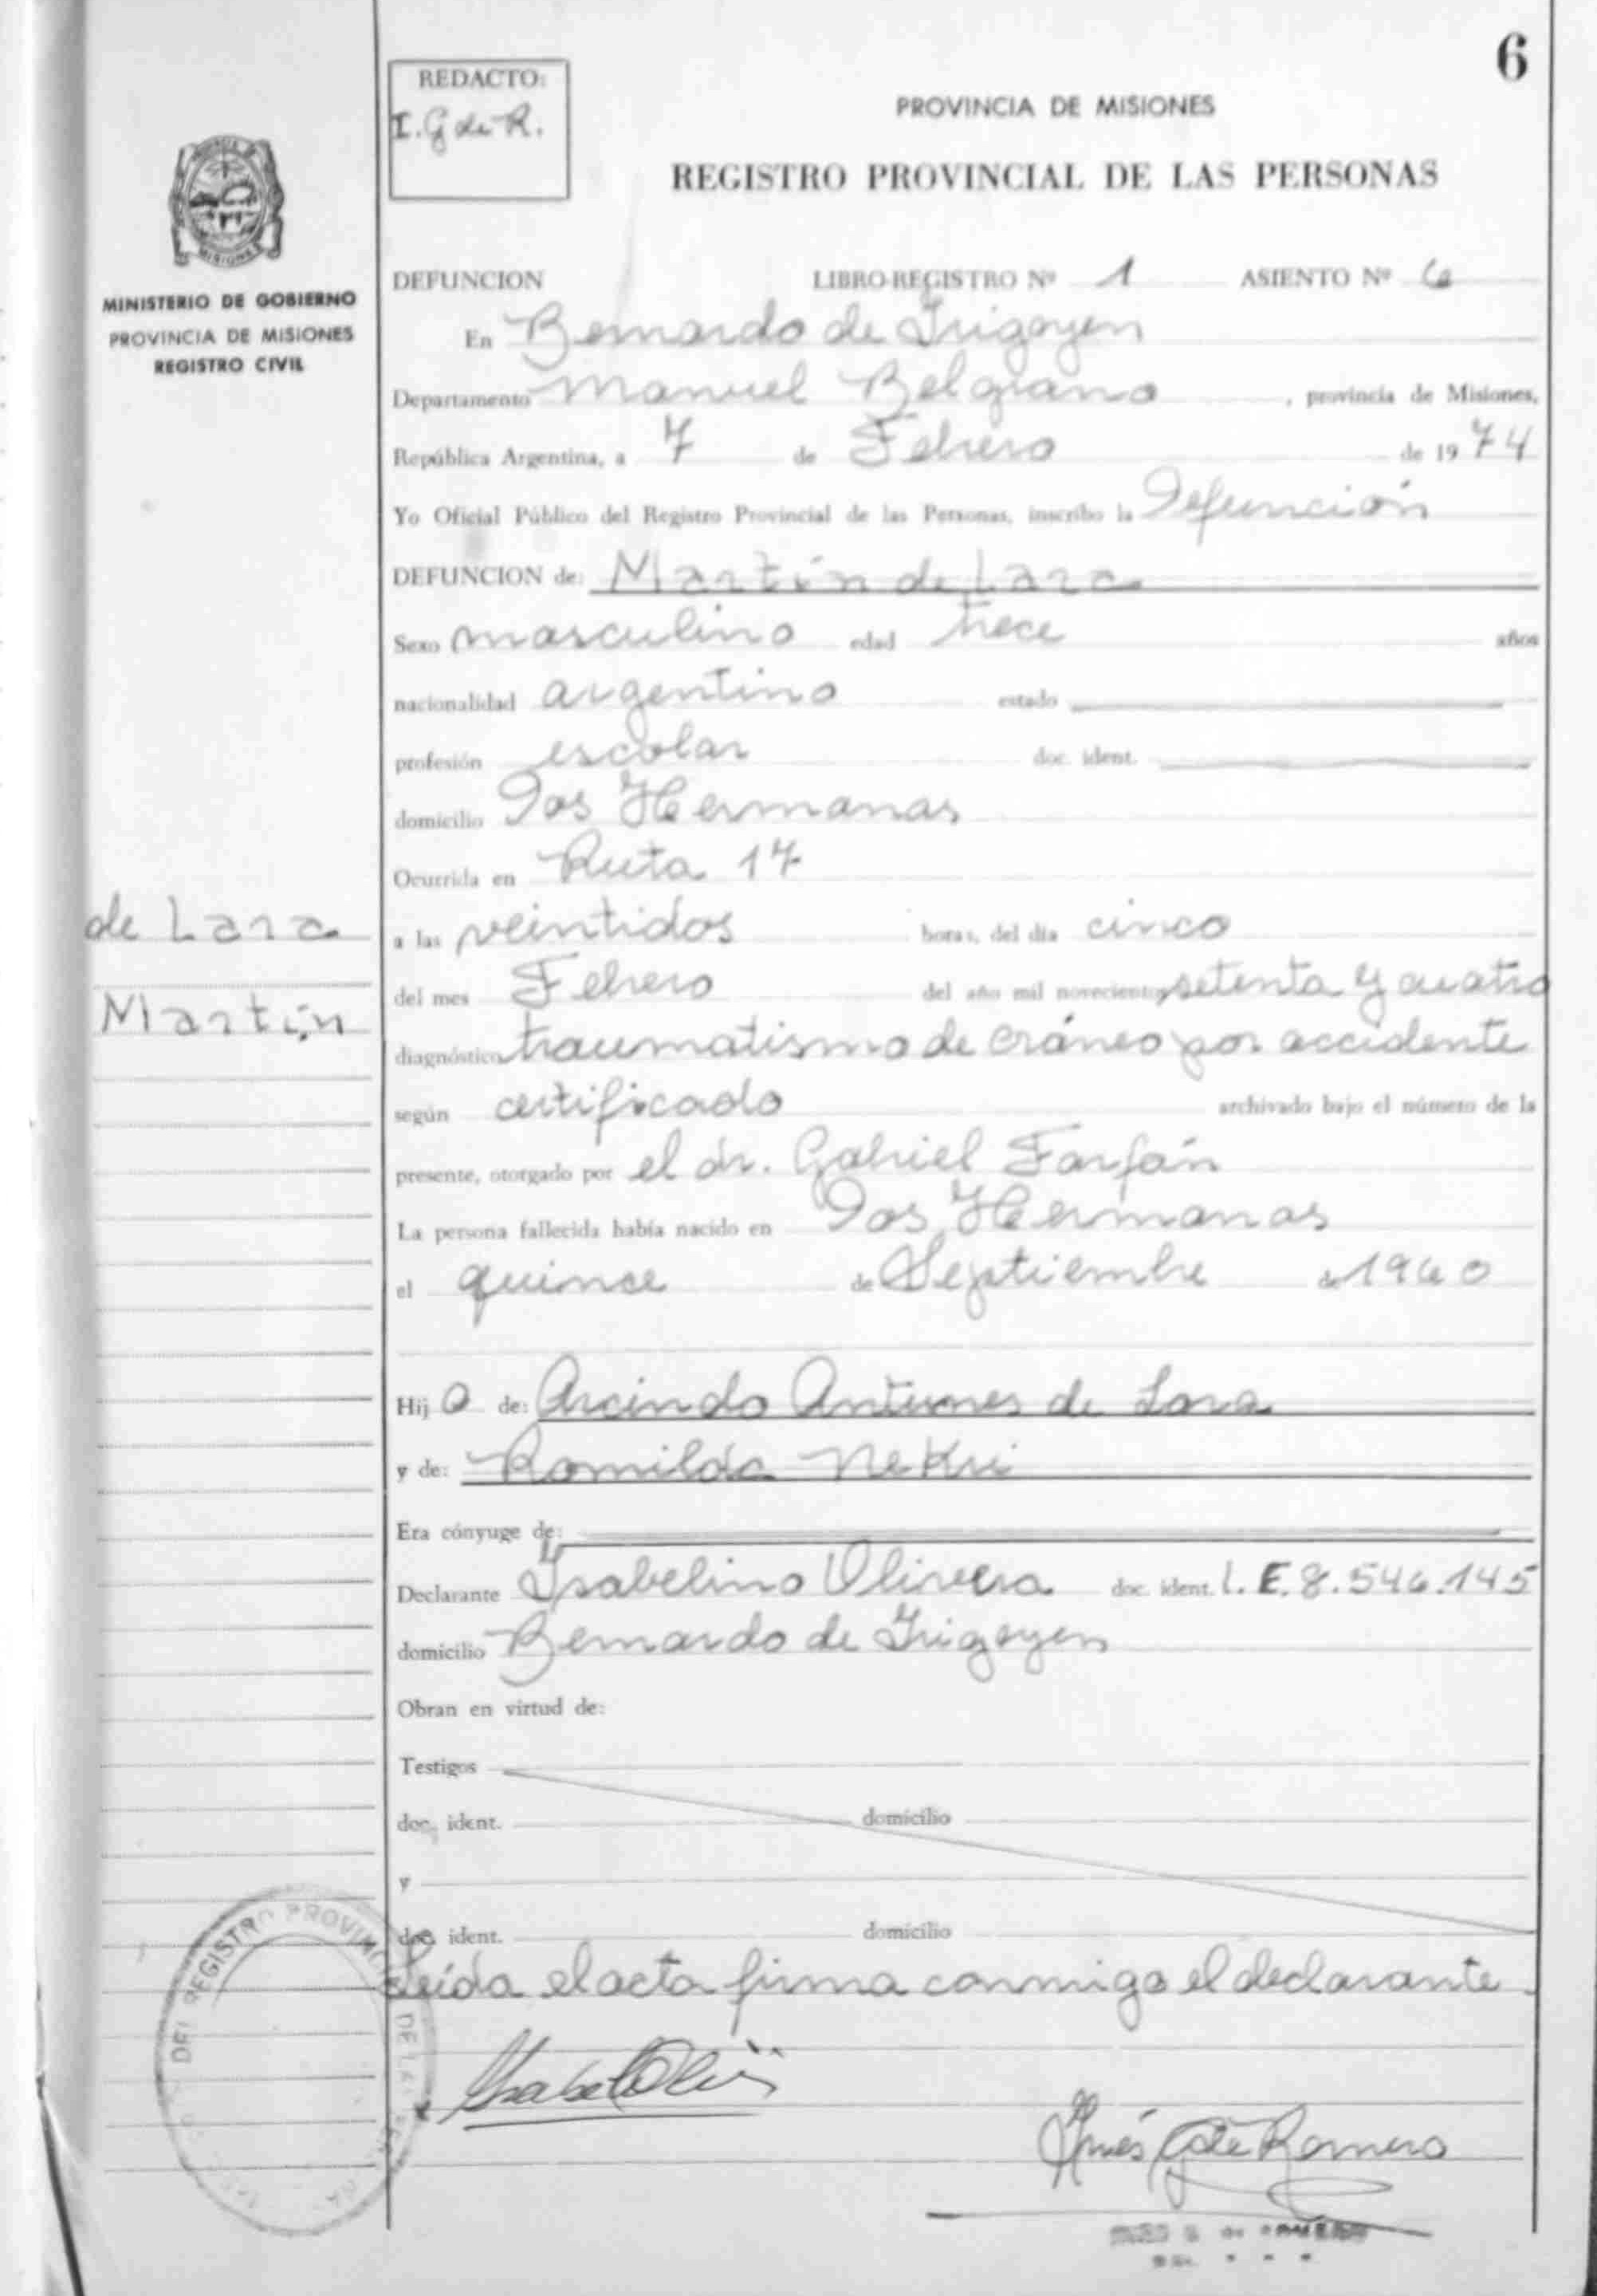 6
REDACTO:
I. G de R.
PROVINCIA DE MISIONES
REGISTRO PROVINCIAL DE LAS PERSONAS
MISIONES
MINISTERIO DE GOBIERNO
PROVINCIA DE MISIONES
REGISTRO CIVIL
DEFUNCION LIBRO-REGISTRO Nº 1 ASIENTO Nº 6
En Bernardo de Irigoyen
Departamento Manuel Belgrano, provincia de Misiones,
República Argentina, a 7 de Febrero de 1974
Yo Oficial Público del Registro Provincial de las Personas, inscribo la Defunción
DEFUNCION de: Martín de Lara
Sexo masculino edad trece años
nacionalidad argentino estado
profesión escolar doc. ident.
domicilio Dos Hermanas
Ocurrida en Ruta 17
de Lara
a las veintidos horas, del día cinco
del mes Febrero del año mil novecientos setenta y cuatro
Martín
diagnóstico traumatismo de cráneo por accidente
según certificado archivado bajo el número de la
presente, otorgado por el dr. Gabriel Farfán
La persona fallecida había nacido en Dos Hermanas
el quince de Septiembre de 1960
Hijo de: Arcindo Antunes de Lara
y de: Romilda Nekri
Era cónyuge de:
Declarante Isabelino Olivera doc. ident. L.E. 8.546.145
domicilio Bernardo de Irigoyen
Obran en virtud de:
Testigos
doc. ident. domicilio
y
doc. ident. domicilio
Leída el acta firma conmigo el declarante.
DEL REGISTRO PROVINCIAL DE LAS
Inés G de Romero